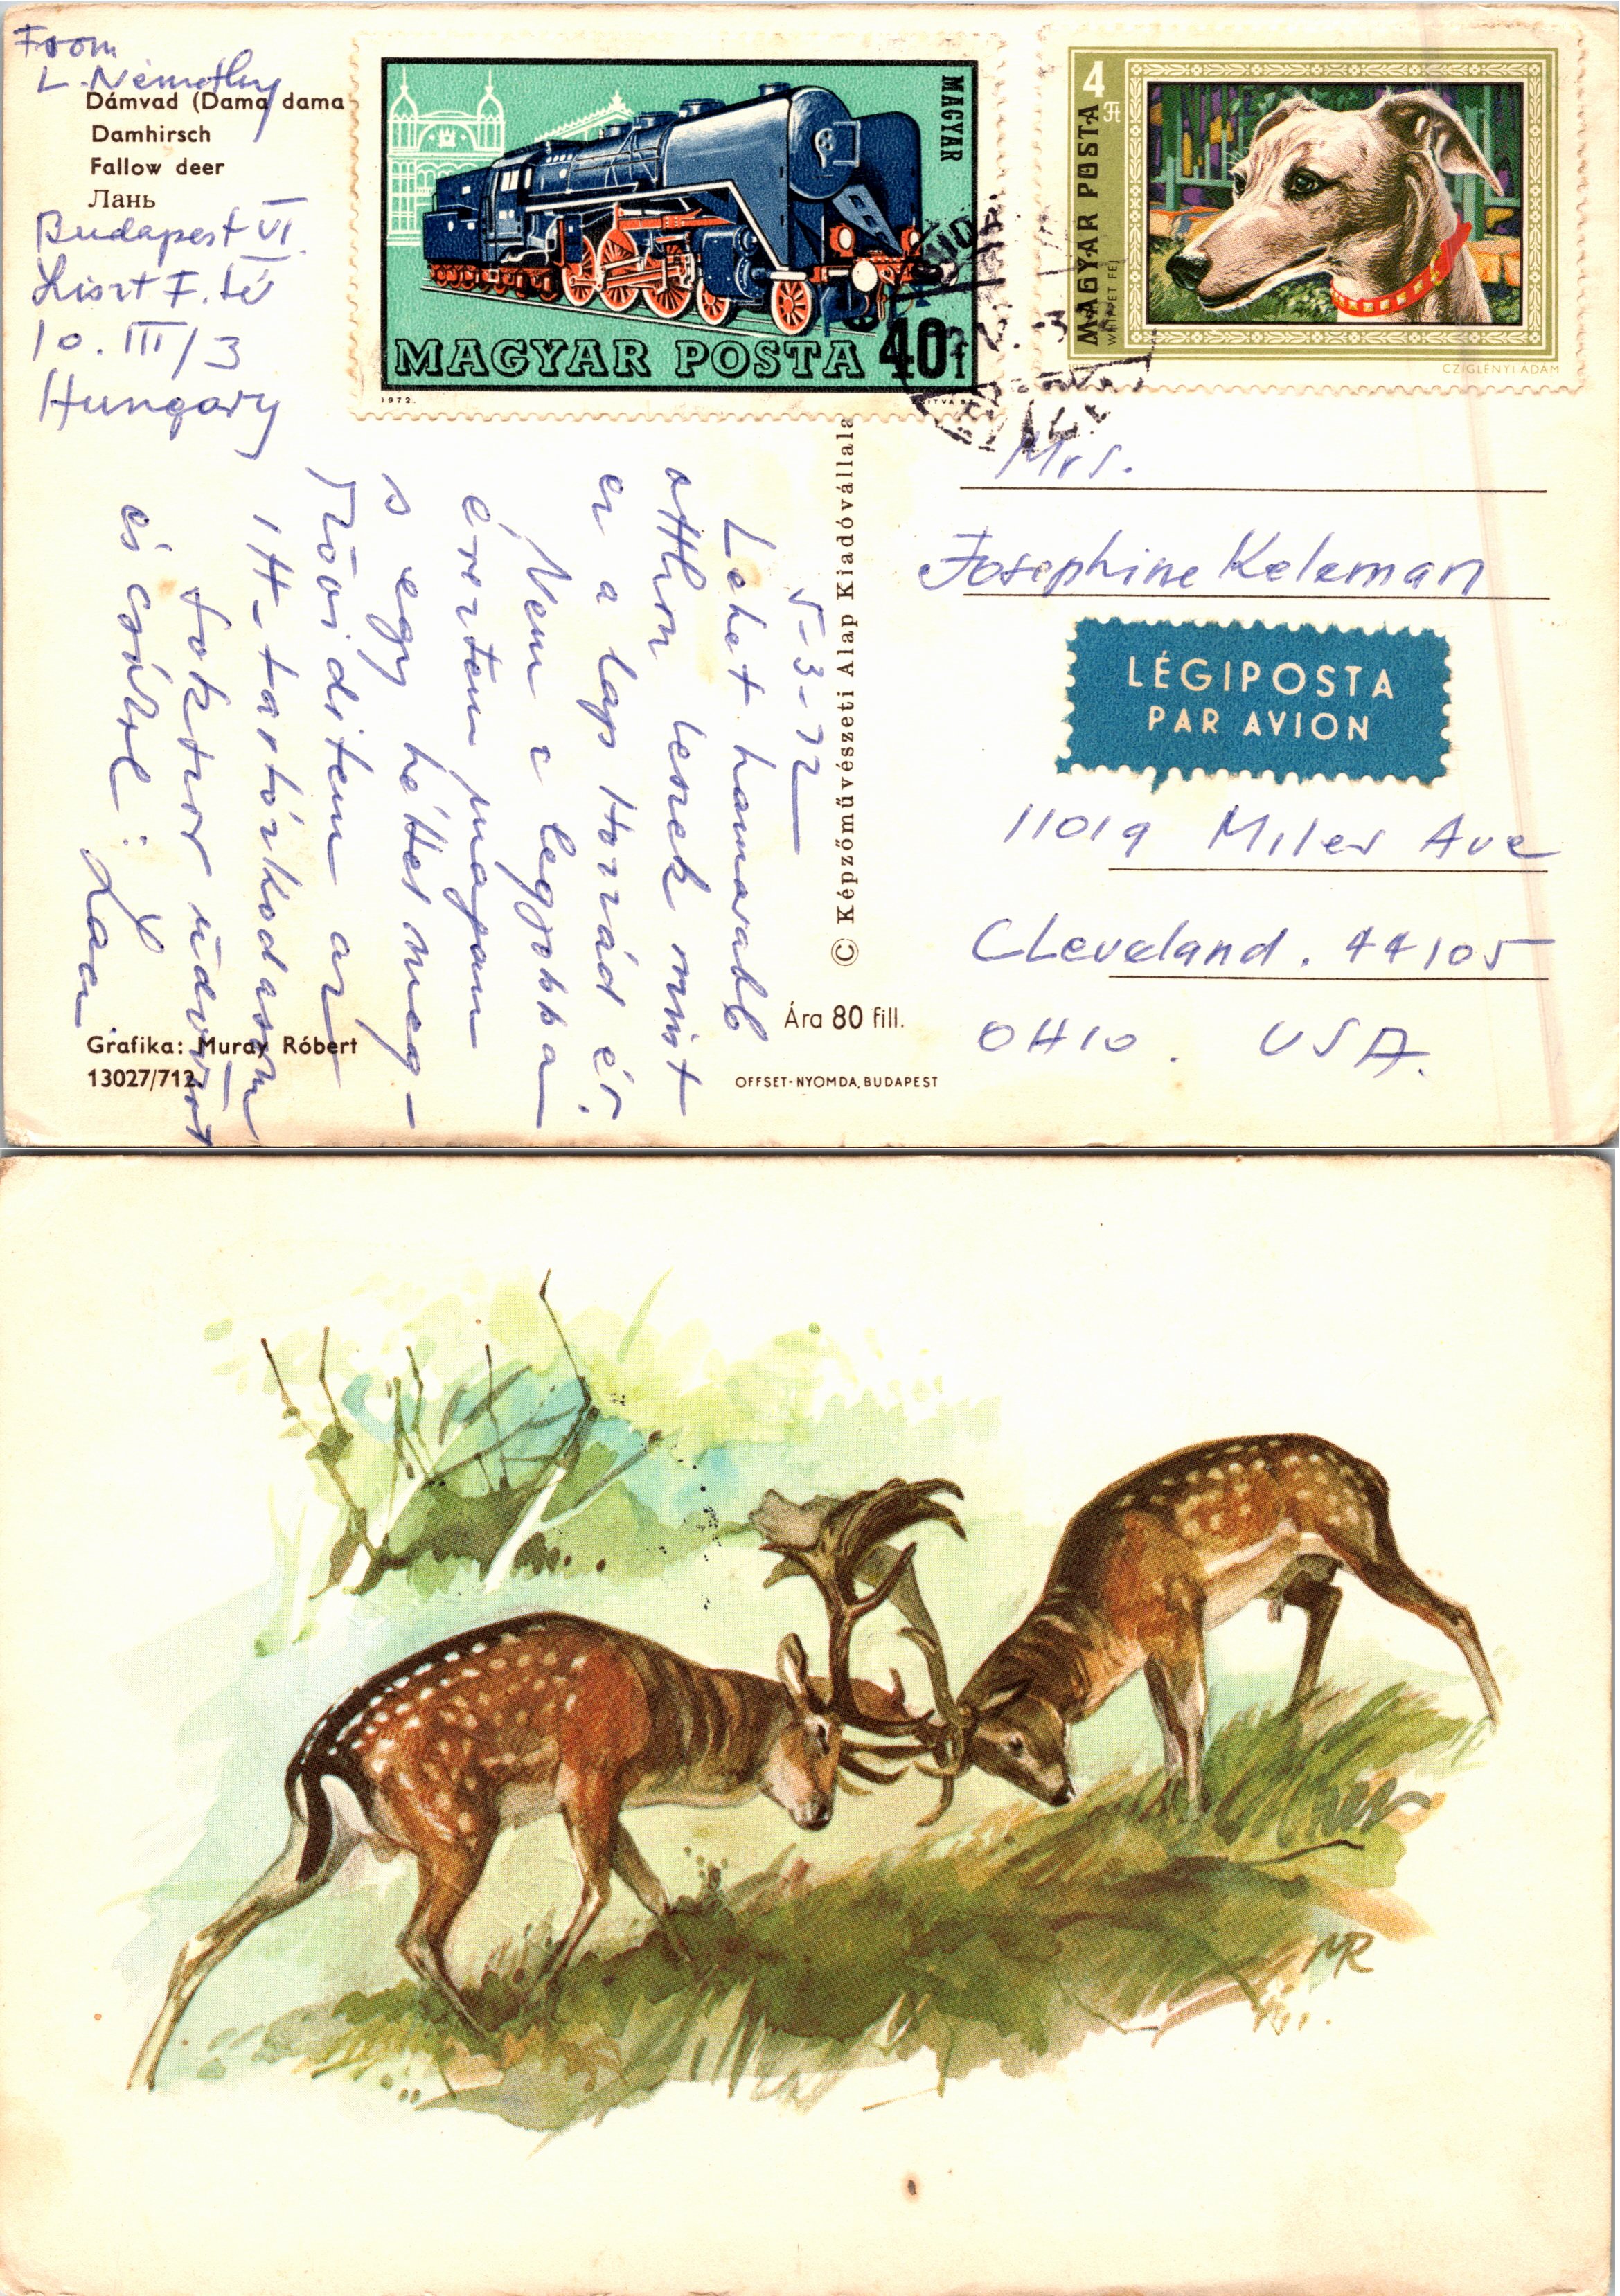 From
L. Némethy
Dámvad (Dama dama
Damhirsch
Fallow deer
Лань
Budapest VI.
Liszt F. tér
10. III/3
Hungary
MAGYAR
MAGYAR POSTA 40f
1972.
4 Ft
MAGYAR POSTA
WHIPPET FEJ
CZIGLÉNYI ÁDÁM
5-3-72
Lehet hamarabb
otthon leszek mint
ez a lap Hozzád ér.
Nem a legjobban
éreztem magam
s egy héttel meg-
rövidítem az
itt-tartózkodásom
sokszor üdvözöl
és csókol: Laci
© Képzőművészeti Alap Kiadóvállala
Mrs.
Josephine Keleman
LÉGIPOSTA
PAR AVION
11019 Miles Ave
Cleveland. 44105
OHIO. USA.
Ára 80 fill.
Grafika: Muray Róbert
13027/712
OFFSET-NYOMDA, BUDAPEST
MR